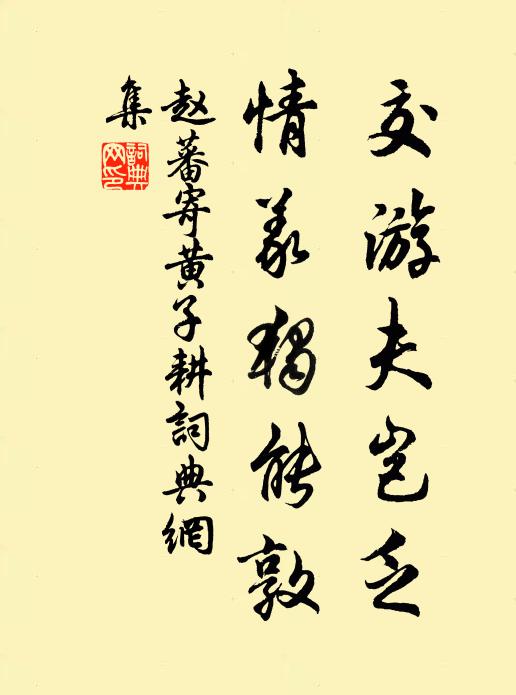 交游夫岂乏
情义独能敦
赵蕃寄黄子耕詞典網
集
詞典网印